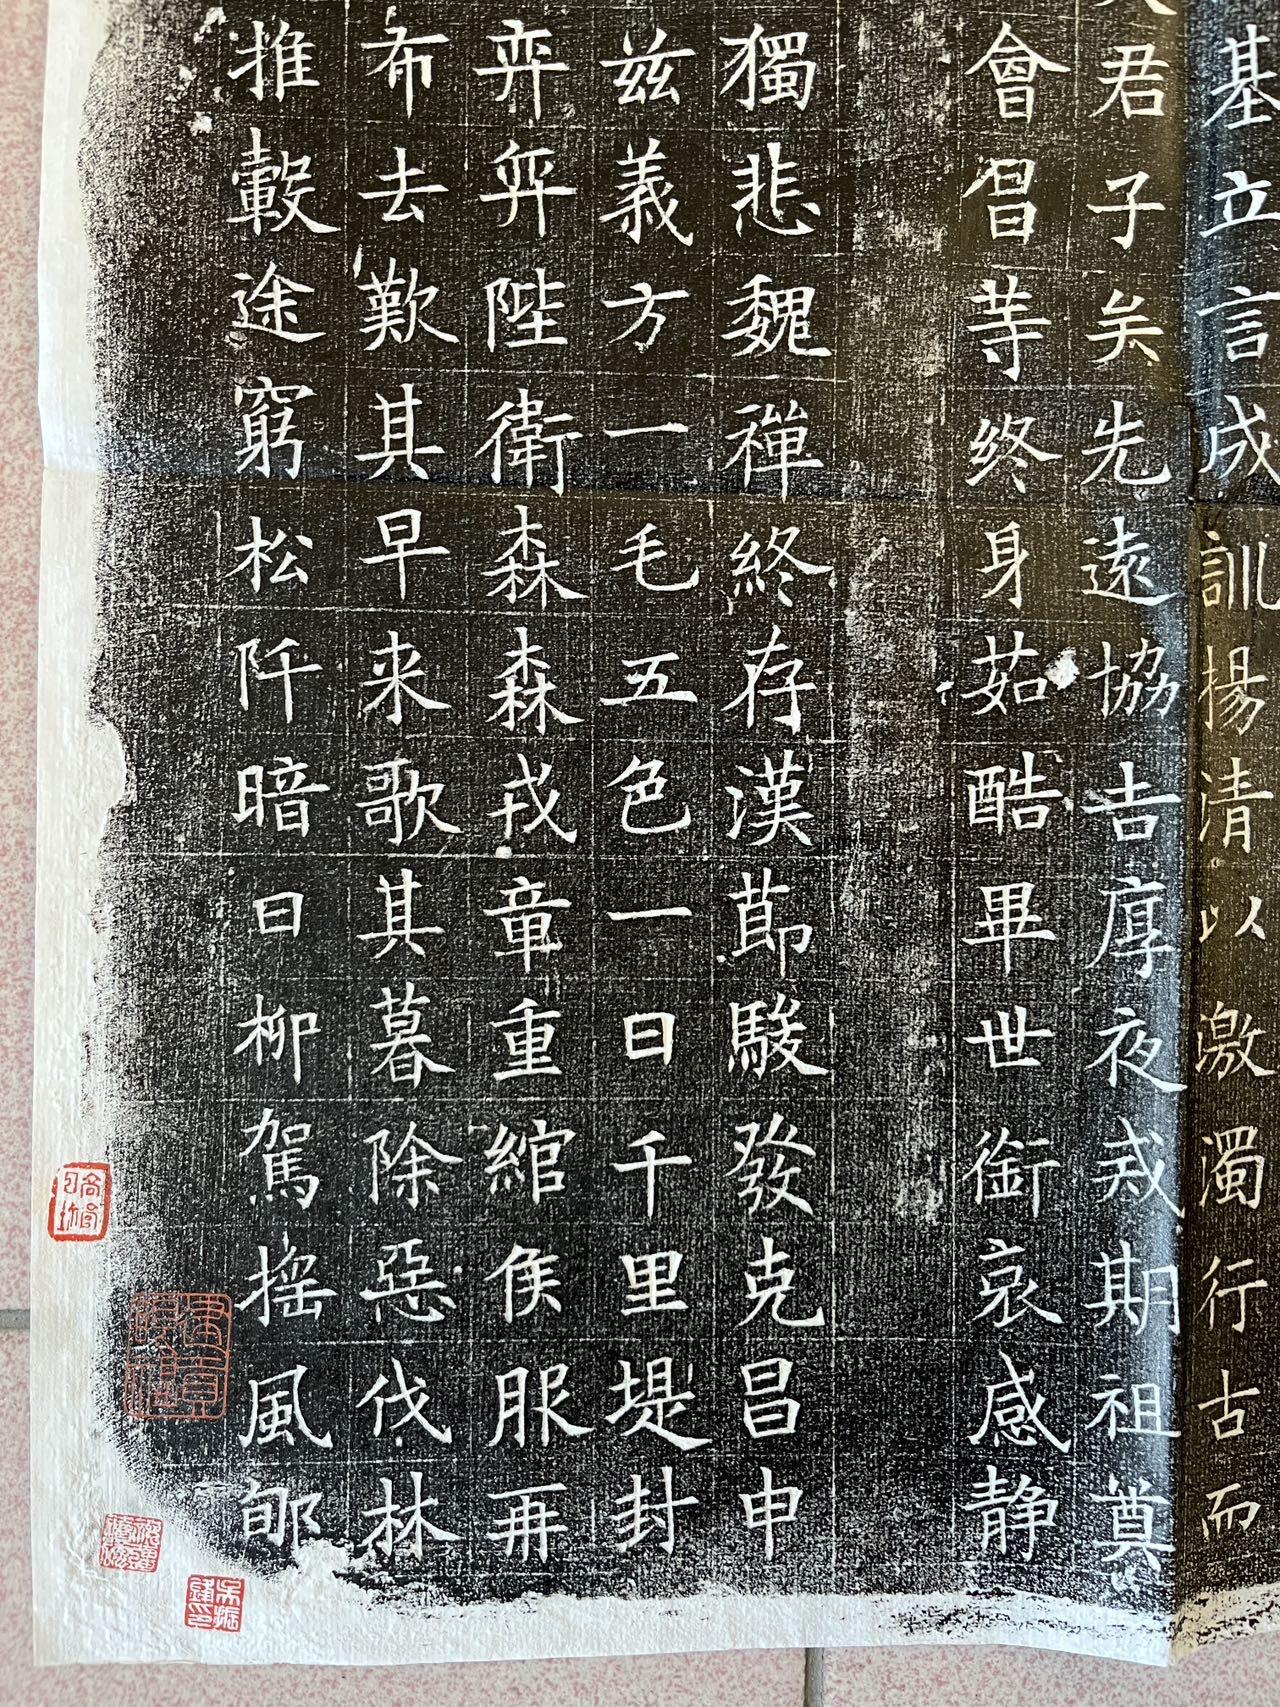 基立言成訓揚清以激濁行古而
君子矣先遠協吉厚夜戒期祖奠
會昌等終身茹酷畢世銜哀感静
獨悲魏禪終存漢節駿發克昌申
兹義方一毛五色一日千里堤封
弈弈陛衛森森戎章重綰侯服再
希去歎其早来歌其暮除惡伐林
推轂途窮松阡暗日柳駕摇風郇